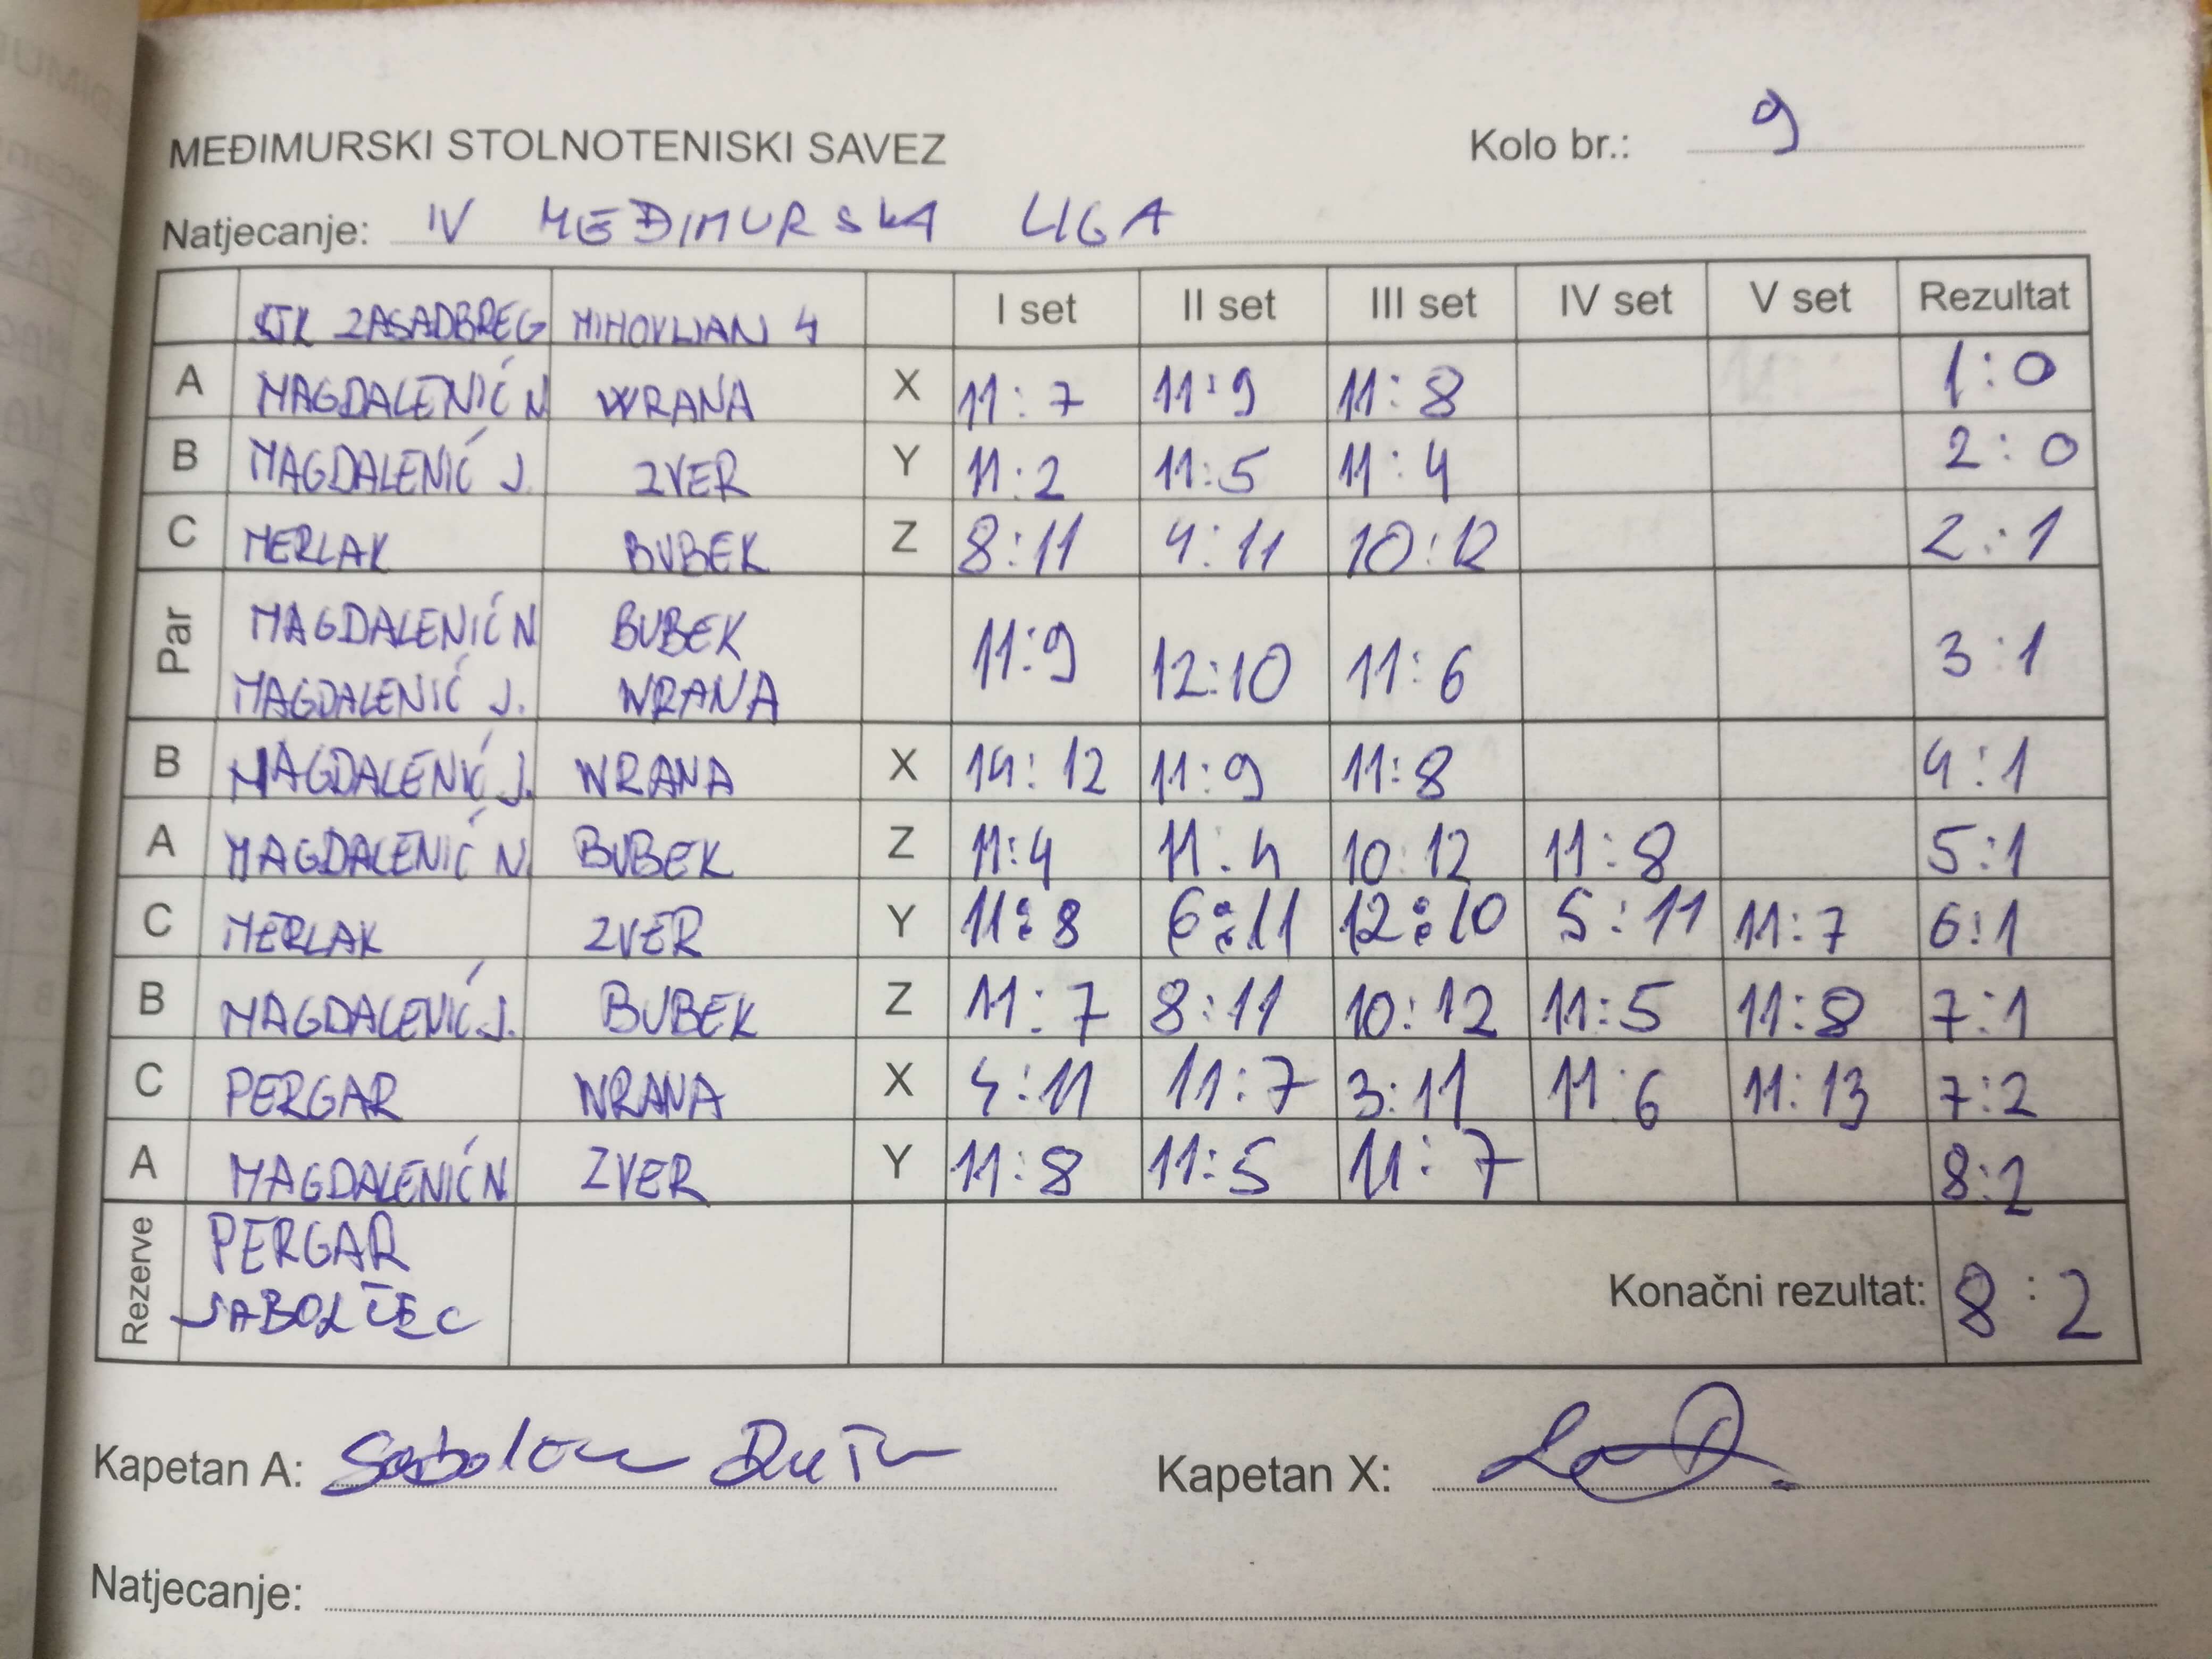 MEĐIMURSKI STOLNOTENISKI SAVEZ Kolo br.: 9
Natjecanje: IV MEĐIMURSKA LIGA
STK ZASADBREG MIHOVLJAN 4 I set II set III set IV set V set Rezultat
A MAGDALENIĆ N WRANA X 11:7 11:9 11:8 1:0
B MAGDALENIĆ J. ZVER Y 11:2 11:5 11:4 2:0
C MERLAK BUBEK Z 8:11 4:11 10:12 2:1
Par MAGDALENIĆ N BUBEK 11:9 12:10 11:6 3:1
MAGDALENIĆ J. WRANA
B MAGDALENIĆ J. WRANA X 14:12 11:9 11:8 4:1
A MAGDALENIĆ N. BUBEK Z 11:4 11:4 10:12 11:8 5:1
C MERLAK ZVER Y 11:8 6:11 12:10 5:11 11:7 6:1
B MAGDALENIĆ J. BUBEK Z 11:7 8:11 10:12 11:5 11:8 7:1
C PERGAR WRANA X 4:11 11:7 3:11 11:6 11:13 7:2
A MAGDALENIĆ N. ZVER Y 11:8 11:5 11:7 8:2
Rezerve PERGAR
SABOLČEC Konačni rezultat: 8:2
Kapetan A: Kapetan X:
Natjecanje: